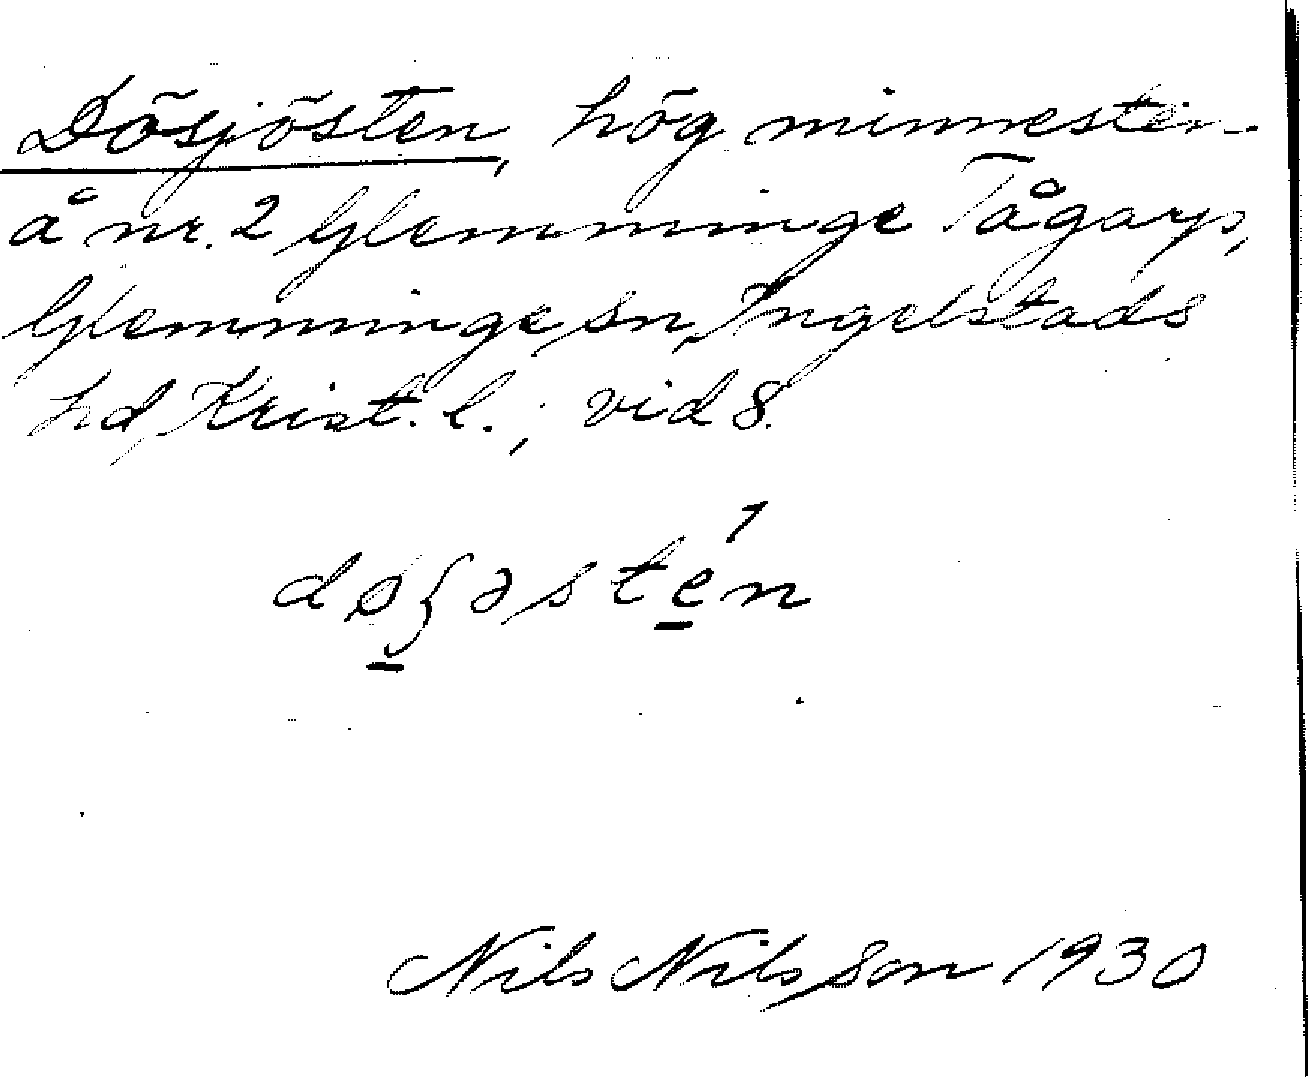 Dösjösten, hög minnesten
å nr. 2 Glemminge Tågarp,
Glemminge sn, Ingelstads
hd, Krist. l.; vid 8.
døʒəste̱ń
Nils Nilsson 1930